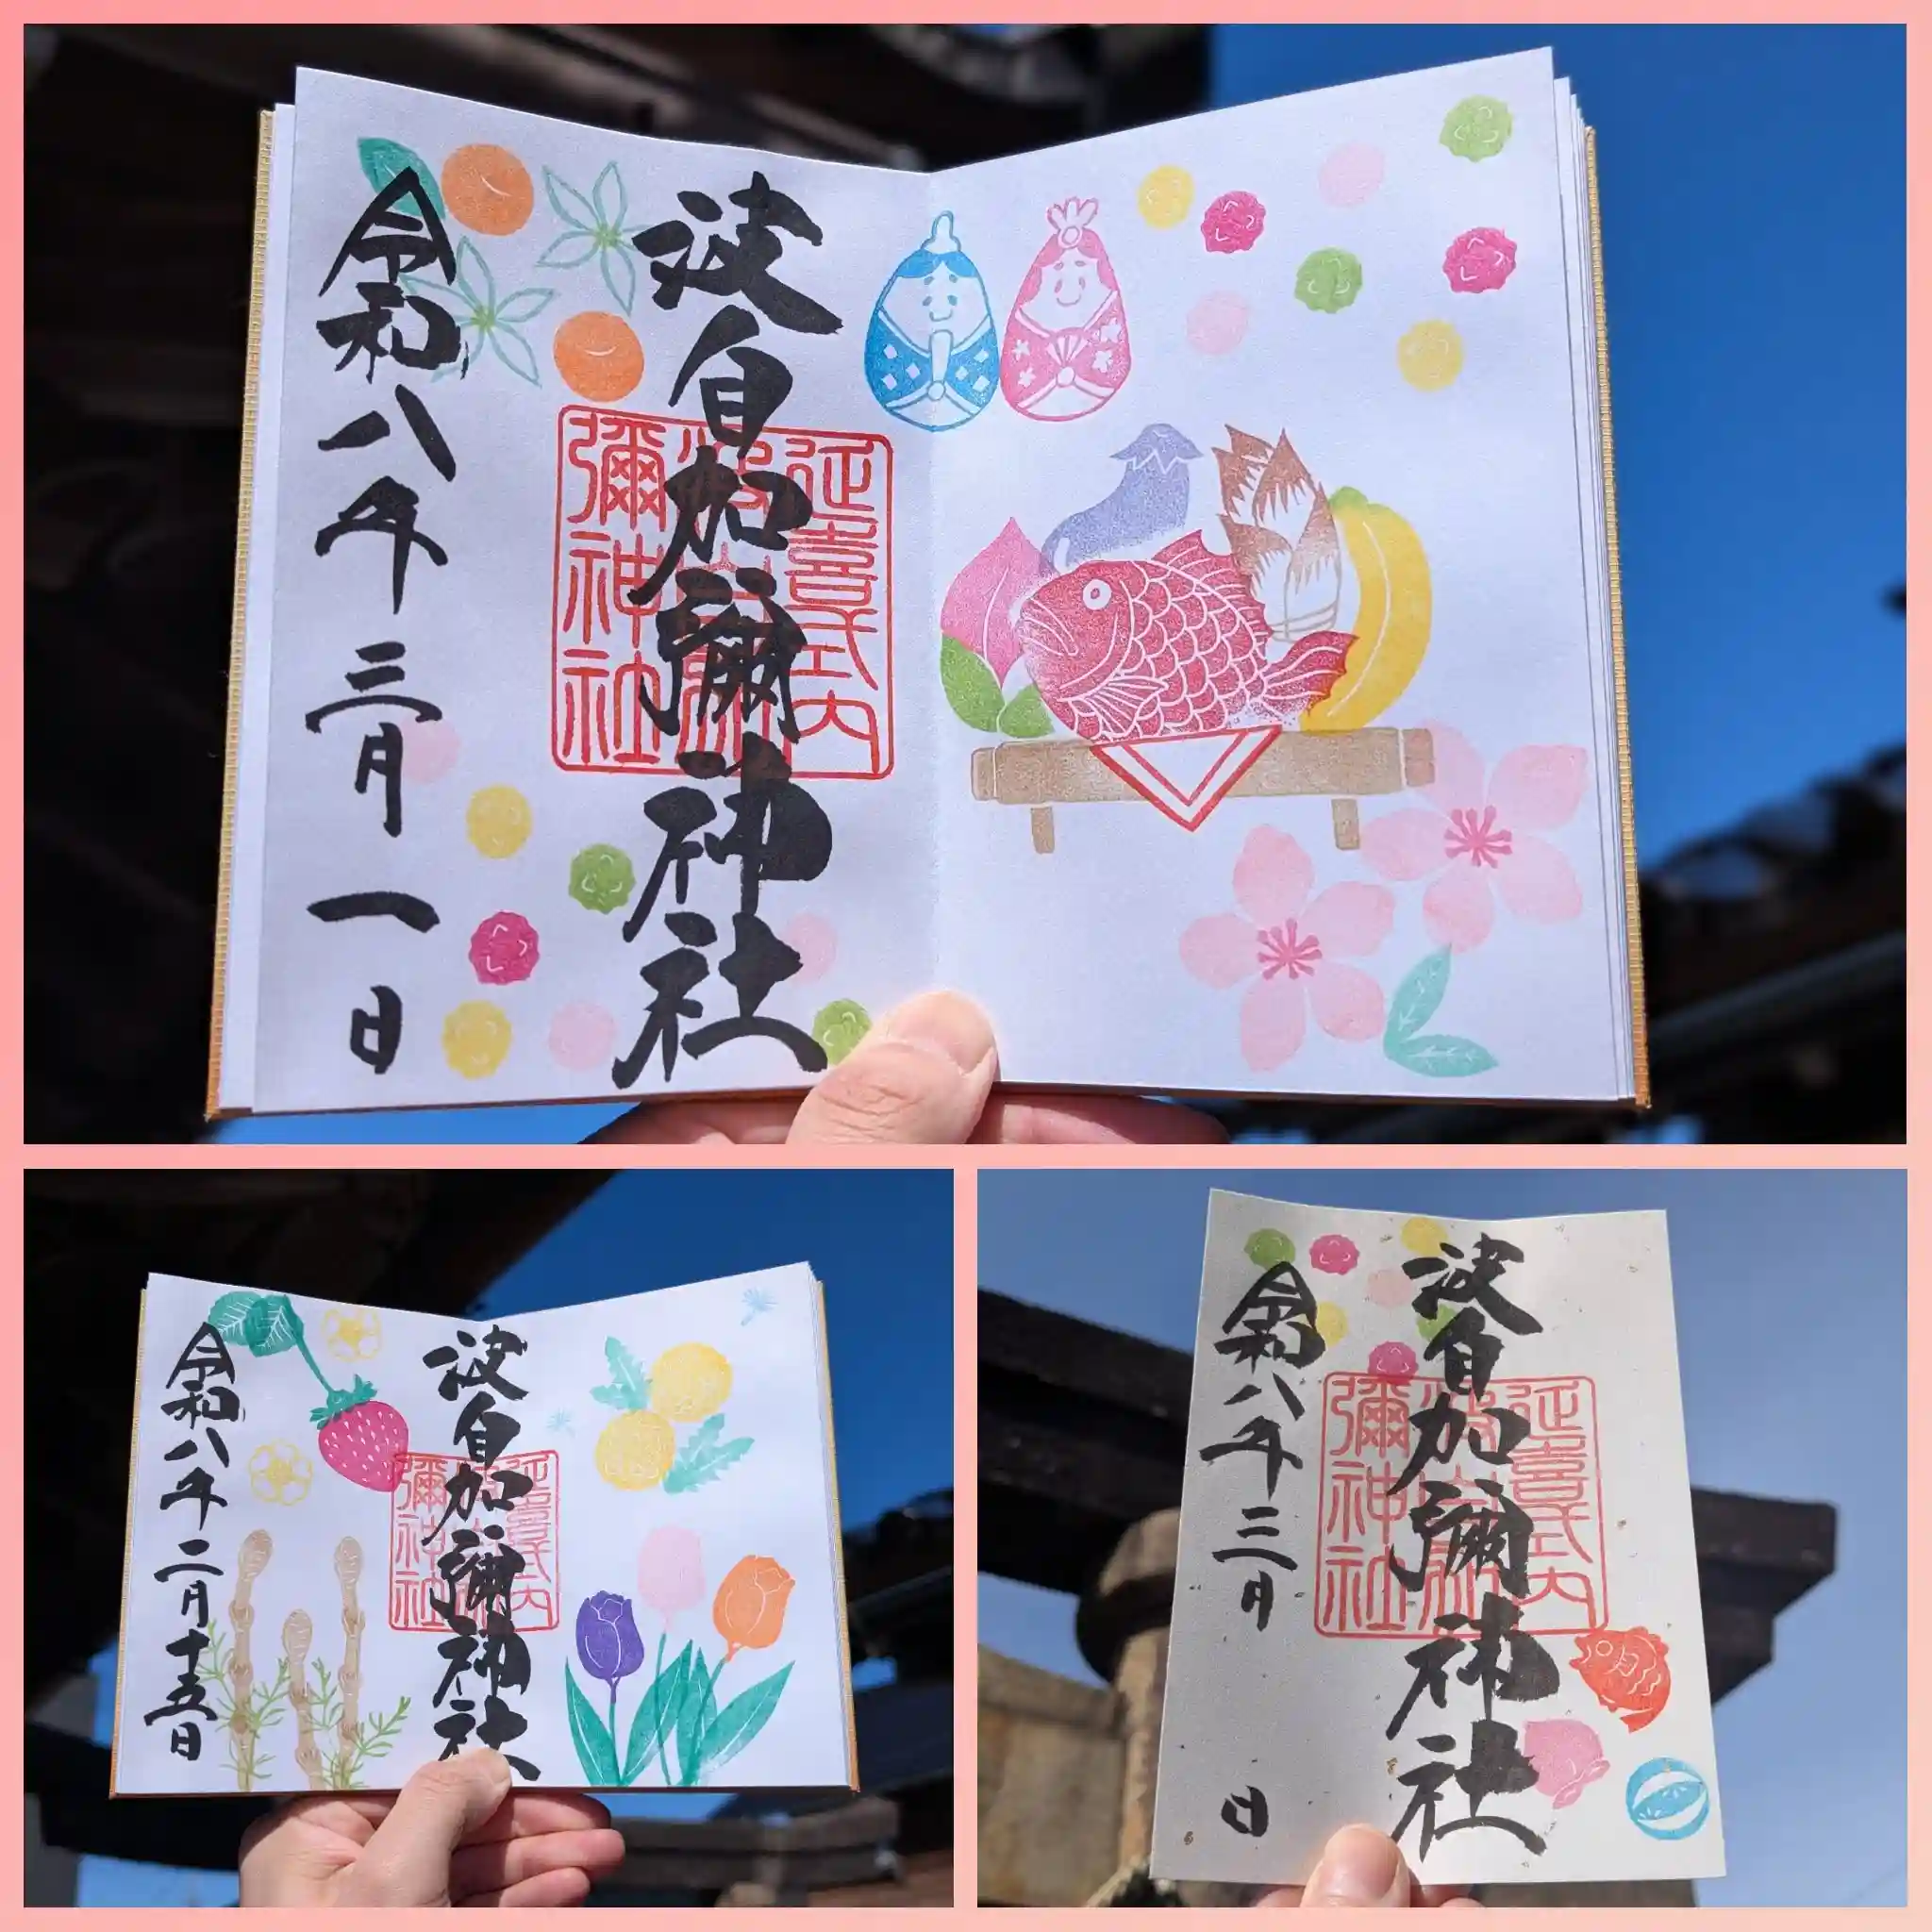 波自加彌神社
延喜式内
彌神社
令和八年三月一日
波自加彌神社
延喜式内
彌神社
令和八年二月十五日
波自加彌神社
延喜式内
彌神社
令和八年三月 日